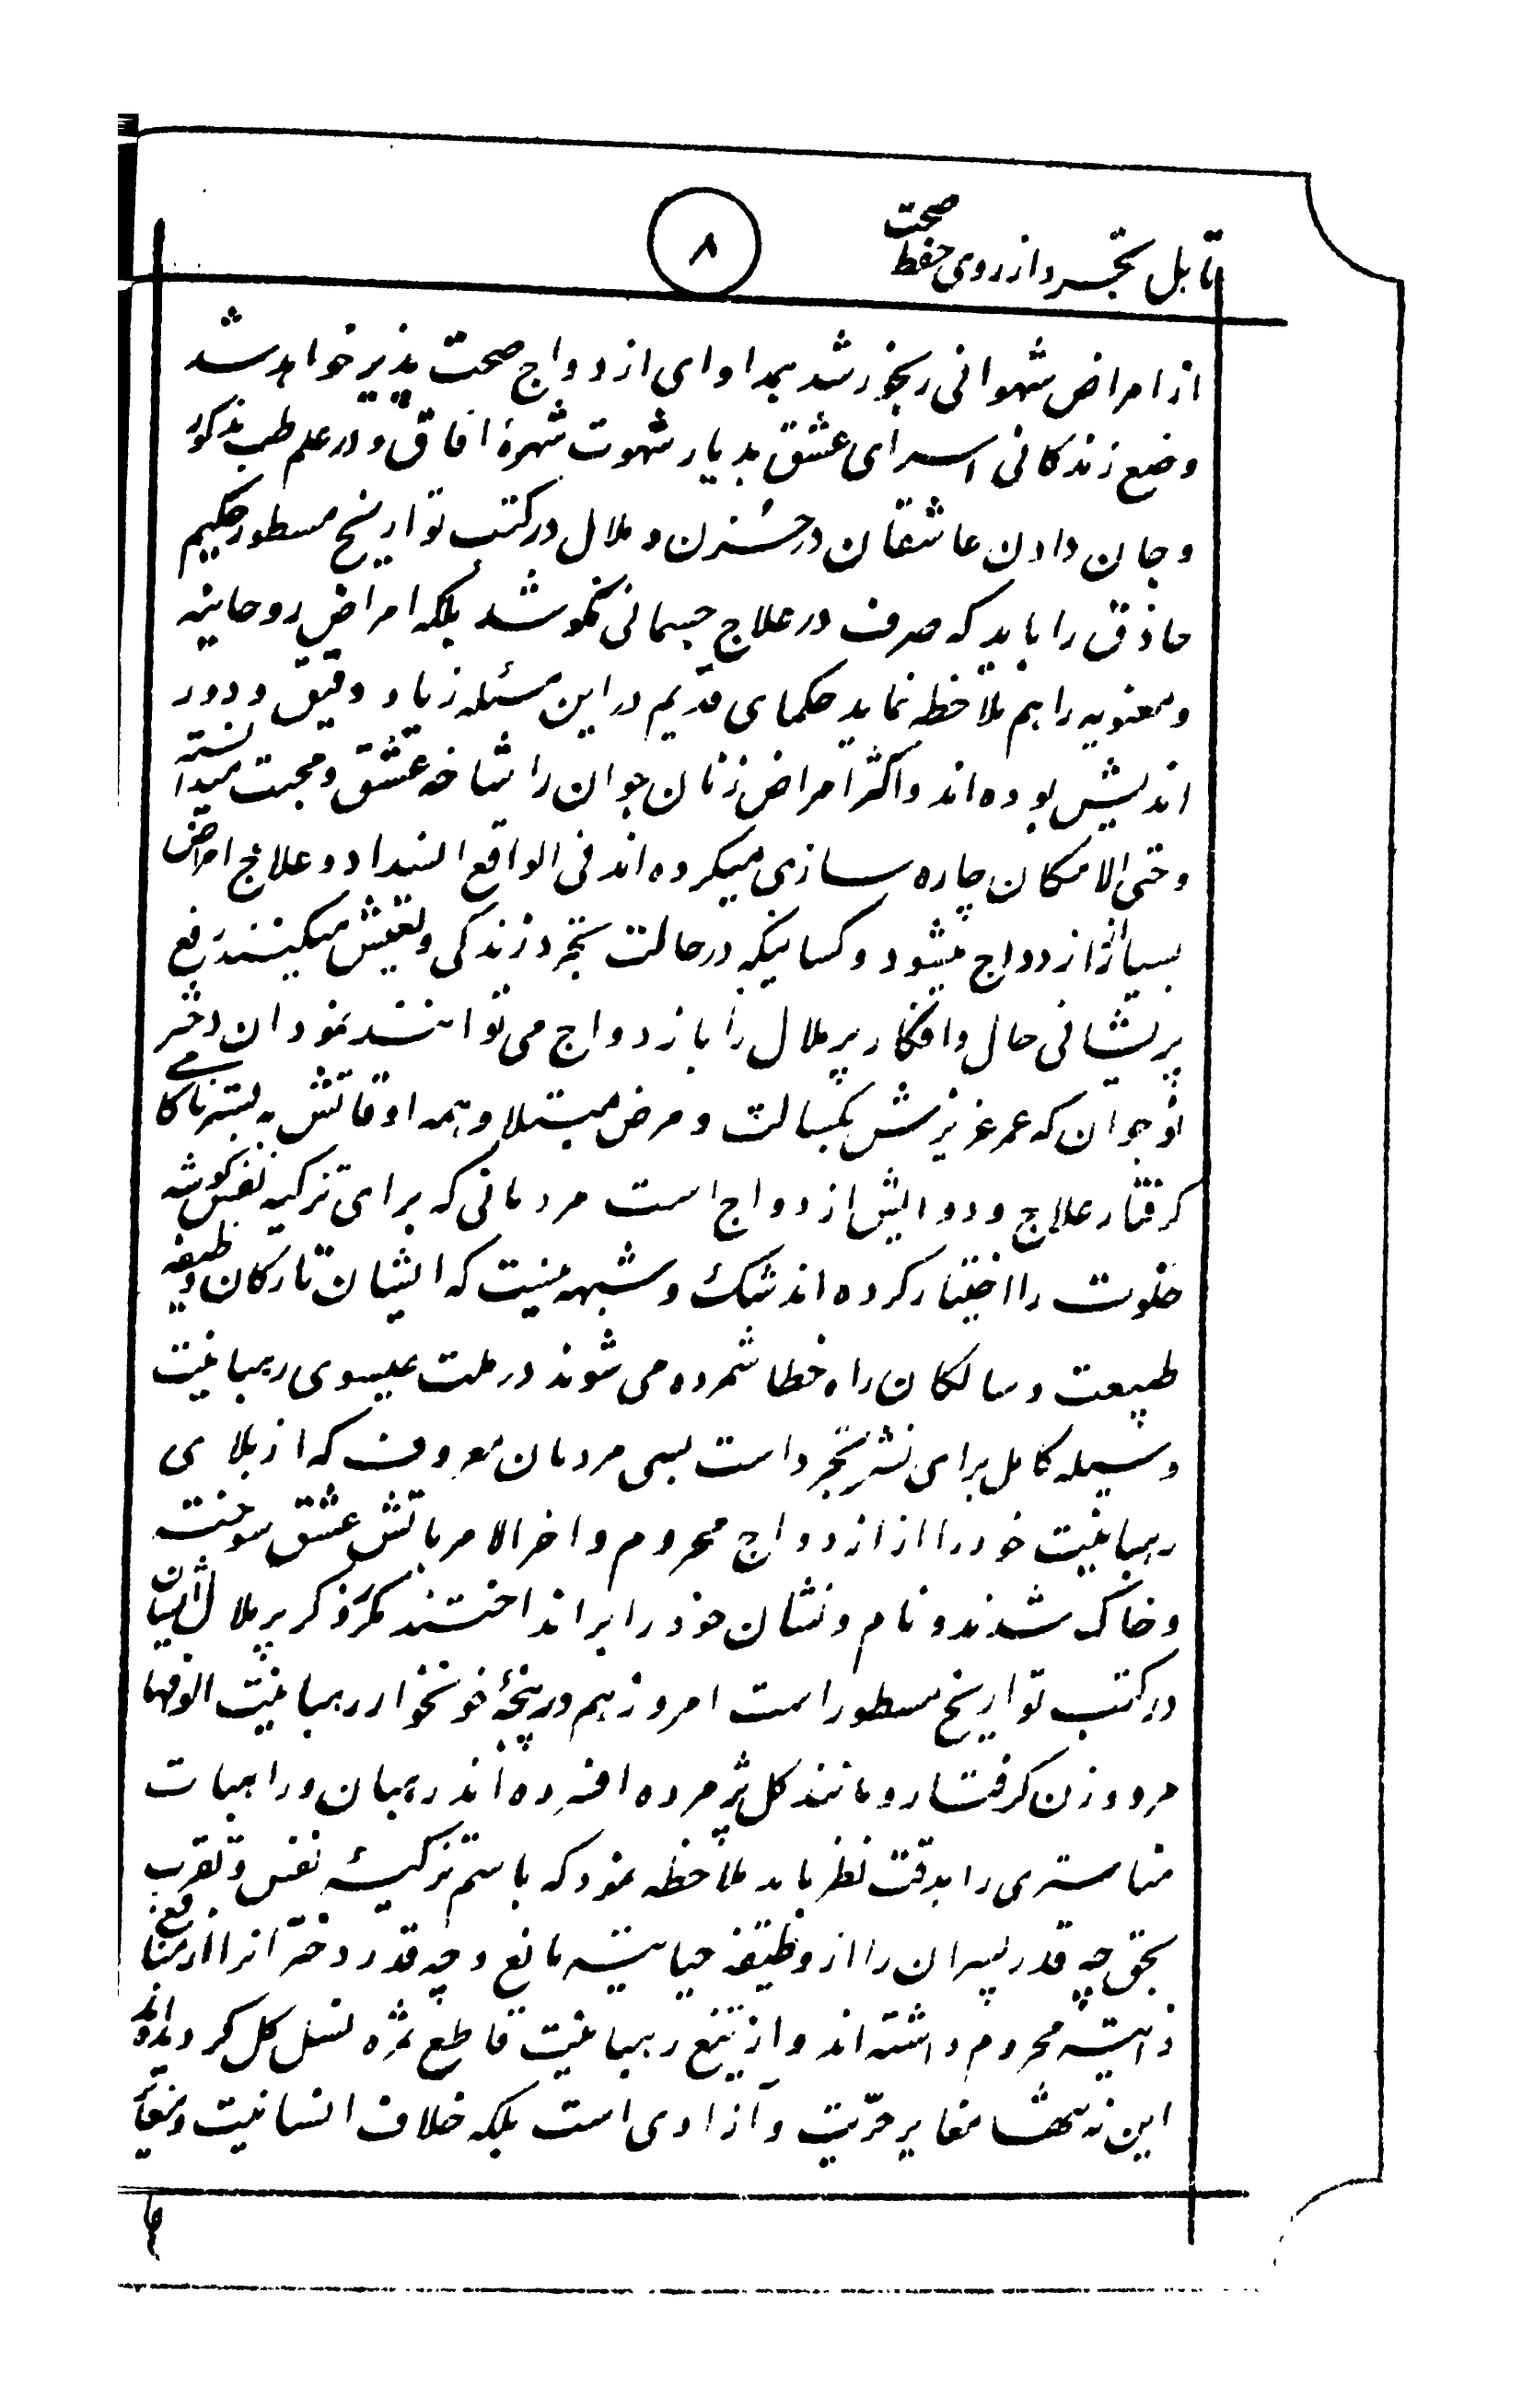 تاهل تجرد از روی حفظ صحت
۸
از امراض شهوانی رنجور شد بمداوای ازدواج صحت پذیر خواهد شد
وضع زندکانی اسرای عشق بدیار شهوت شهرهٔ افاق و در علم طب مذکور
و جان دادن عاشقان در حزن و ملال در کتب تواریخ مسطور حکیم
حاذق را باید که صرف در علاج جسمانی نکوشد بلکه امراض روحانیه
و معنویه را هم ملاحظه نماید حکمای قدیم در این مسئله زیاد دقیق و دور
اندیش بوده اند و اکثر امراض زنان جوان را شاخه عشق و محبت میدانسته
و حتی الامکان چاره سازی میکرده اند فی الواقع انسداد و علاج امراض
بسیار از ازدواج میشود و کسانیکه در حالت تجرد زندکی و تعیش میکنند رفع
پریشانی حال و افکار پر ملال را با ازدواج می توانند نمود ان دختر
نوجوان که عمر عزیزش بکسالت و مرض مبتلا و همه اوقاتش به بستر ناکامی
کرفتار علاج و دوایش ازدواج است مردمانی که برای تزکیه نفس کوشه
خلوت را اختیار کرده اند شک و شبهه نیست که ایشان تارکان وظیفه
طبیعت و سالکان راه خطا شمرده می شوند در ملت عیسوی رهبانیت
وسیله کامل برای نشر تجرد است بسی مردمان معروف که از بلای
رهبانیت خود را از ازدواج محروم و اخر الامر باتش عشق سوخت
و خاک شدند و نام و نشان خود را بر انداختند مکرر ذکر پر ملال ایشان
در کتب تواریخ مسطور است امروز هم در پنجهٔ خونخوار رهبانیت الوفها
مرد و زن کرفتار و مانند کل پژمرده افسرده اند رهبان و راهبات
مناستری را بدقت نظر باید ملاحظه نمود که باسم تزکیهٔ نفس و تقرب
بحق چه قدر پسران را از وظیفه حیاتیه مانع و چه قدر دختران را از منافع
ذاتیه محروم داشته اند و از تیغ رهبانیت قاطع ثمره نسل کل کردیده اند
این نه تنها مغایر حرّیت و آزادی است بلکه خلاف انسانیت و منفعت